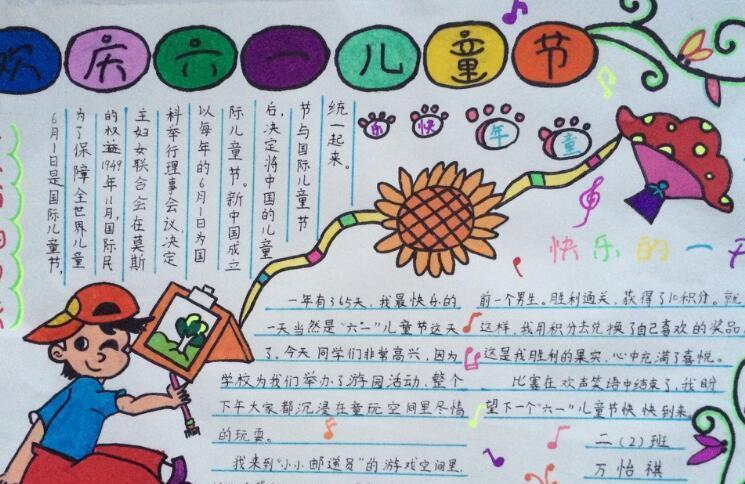 欢庆六一儿童节
乐快年童
6月1日是国际儿童节,
为了保障全世界儿童
的权益1949年11月,国际民
主妇女联合会在莫斯
科举行理事会议,决定
以每年的6月1日为国
际儿童节。新中国成立
后,决定将中国的儿童
节与国际儿童节
统一起来。
快乐的一天
一年有365天,我最快乐的
一天当然是“六一”儿童节这天
了。今天同学们非常高兴,因为
学校为我们举办了游园活动,整个
下午大家都沉浸在童玩空间里尽情
的玩耍。
我来到“小小邮递员”的游戏空间里,
前一个男生。胜利通关,获得了10积分。就
这样,我用积分去兑换了自己喜欢的奖品
这是我胜利的果实,心中充满了喜悦。
比赛在欢声笑语中结束了,我盼
望下一个“六一”儿童节快快到来。
二(2)班
万怡祺